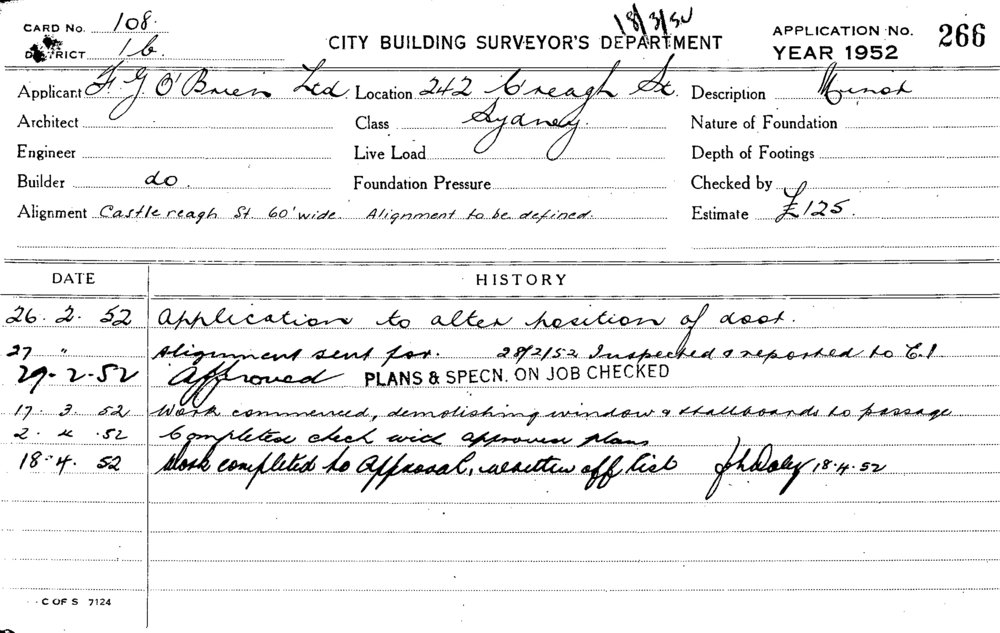 CARD No. 108. 18/3/52 APPLICATION No. 266
DISTRICT 1b. CITY BUILDING SURVEYOR'S DEPARTMENT YEAR 1952
Applicant F. G. O'Brien Ltd. Location 242 C'reagh St. Description Minor
Architect Class Sydney. Nature of Foundation
Engineer Live Load Depth of Footings
Builder do. Foundation Pressure Checked by
Alignment Castlereagh St. 60' wide. Alignment to be defined. Estimate £125.
DATE HISTORY
26. 2. 52 Application to alter position of door.
27 " Alignment sent for. 28/2/52 Inspected & reported to C.I
29-2-52 Approved PLANS & SPECN. ON JOB CHECKED
17. 3. 52 Work commenced, demolishing window & stallboards to passage
2. 4. 52 Completed check with approved plans
18.4. 52 Work completed to Approval, written off list John Daley 18.4.52
C OF S 7124